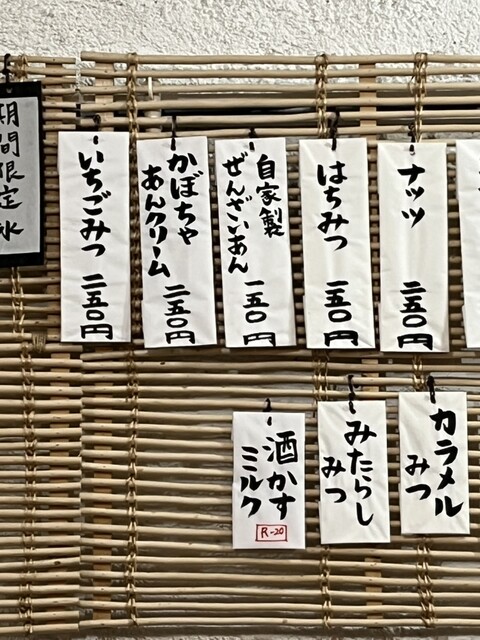 ナッツ 二五〇円
はちみつ 二五〇円
自家製
ぜんざいあん 一五〇円
かぼちゃ
あんクリーム 二五〇円
いちごみつ 二五〇円
期間限定氷
カラメル
みつ
みたらし
みつ
酒かす
ミルク
R-20